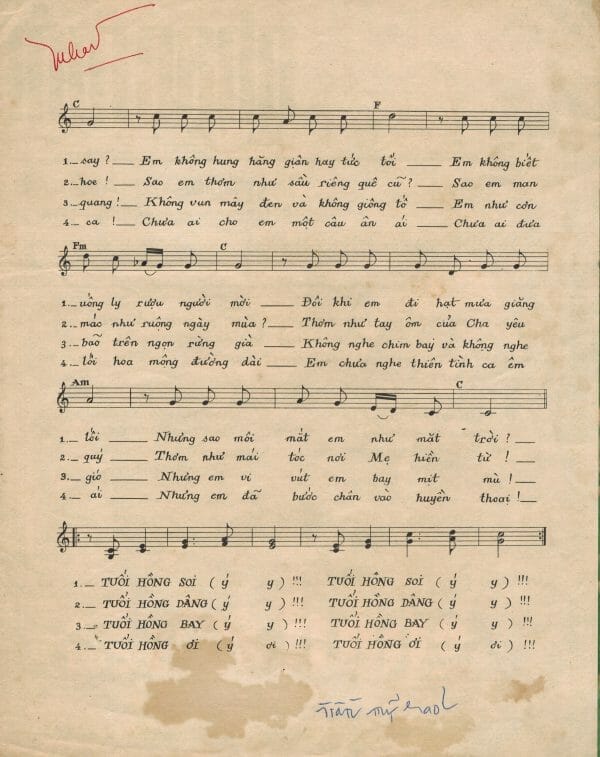 C F
1._ say? ___ Em không hung hăng giận hay tức tối ___ Em không biết
2._ hoe! ___ Sao em thơm như sầu riêng quê cũ? ___ Sao em man
3._ quang! ___ Không vun mây đen và không giông tố ___ Em như cơn
4._ ca! ___ Chưa ai cho em một câu ân ái ___ Chưa ai đưa
Fm C
1._ uống ly rượu người mời ___ Đôi khi em đi hạt mưa giăng
2._ mác như ruộng ngày mùa? ___ Thơm như tay ôm của Cha yêu
3._ bão trên ngọn rừng già ___ Không nghe chim bay và không nghe
4._ lối hoa mộng đường dài ___ Em chưa nghe thiên tình ca êm
Am C
1._ lối ___ Nhưng sao môi mắt em như mặt trời? ___
2._ quý ___ Thơm như mái tóc nơi Mẹ hiền từ! ___
3._ gió ___ Nhưng em vi vút em bay mịt mù! ___
4._ ái ___ Nhưng em đã bước chân vào huyền thoại! ___
1._ TUỔI HỒNG SOI (ý y)!!! TUỔI HỒNG SOI (ý y)!!!
2._ TUỔI HỒNG DÂNG (ý y)!!! TUỔI HỒNG DÂNG (ý y)!!!
3._ TUỔI HỒNG BAY (ý y)!!! TUỔI HỒNG BAY (ý y)!!!
4._ TUỔI HỒNG ƠI (ý ơi)!!! TUỔI HỒNG ƠI (ý ơi)!!!